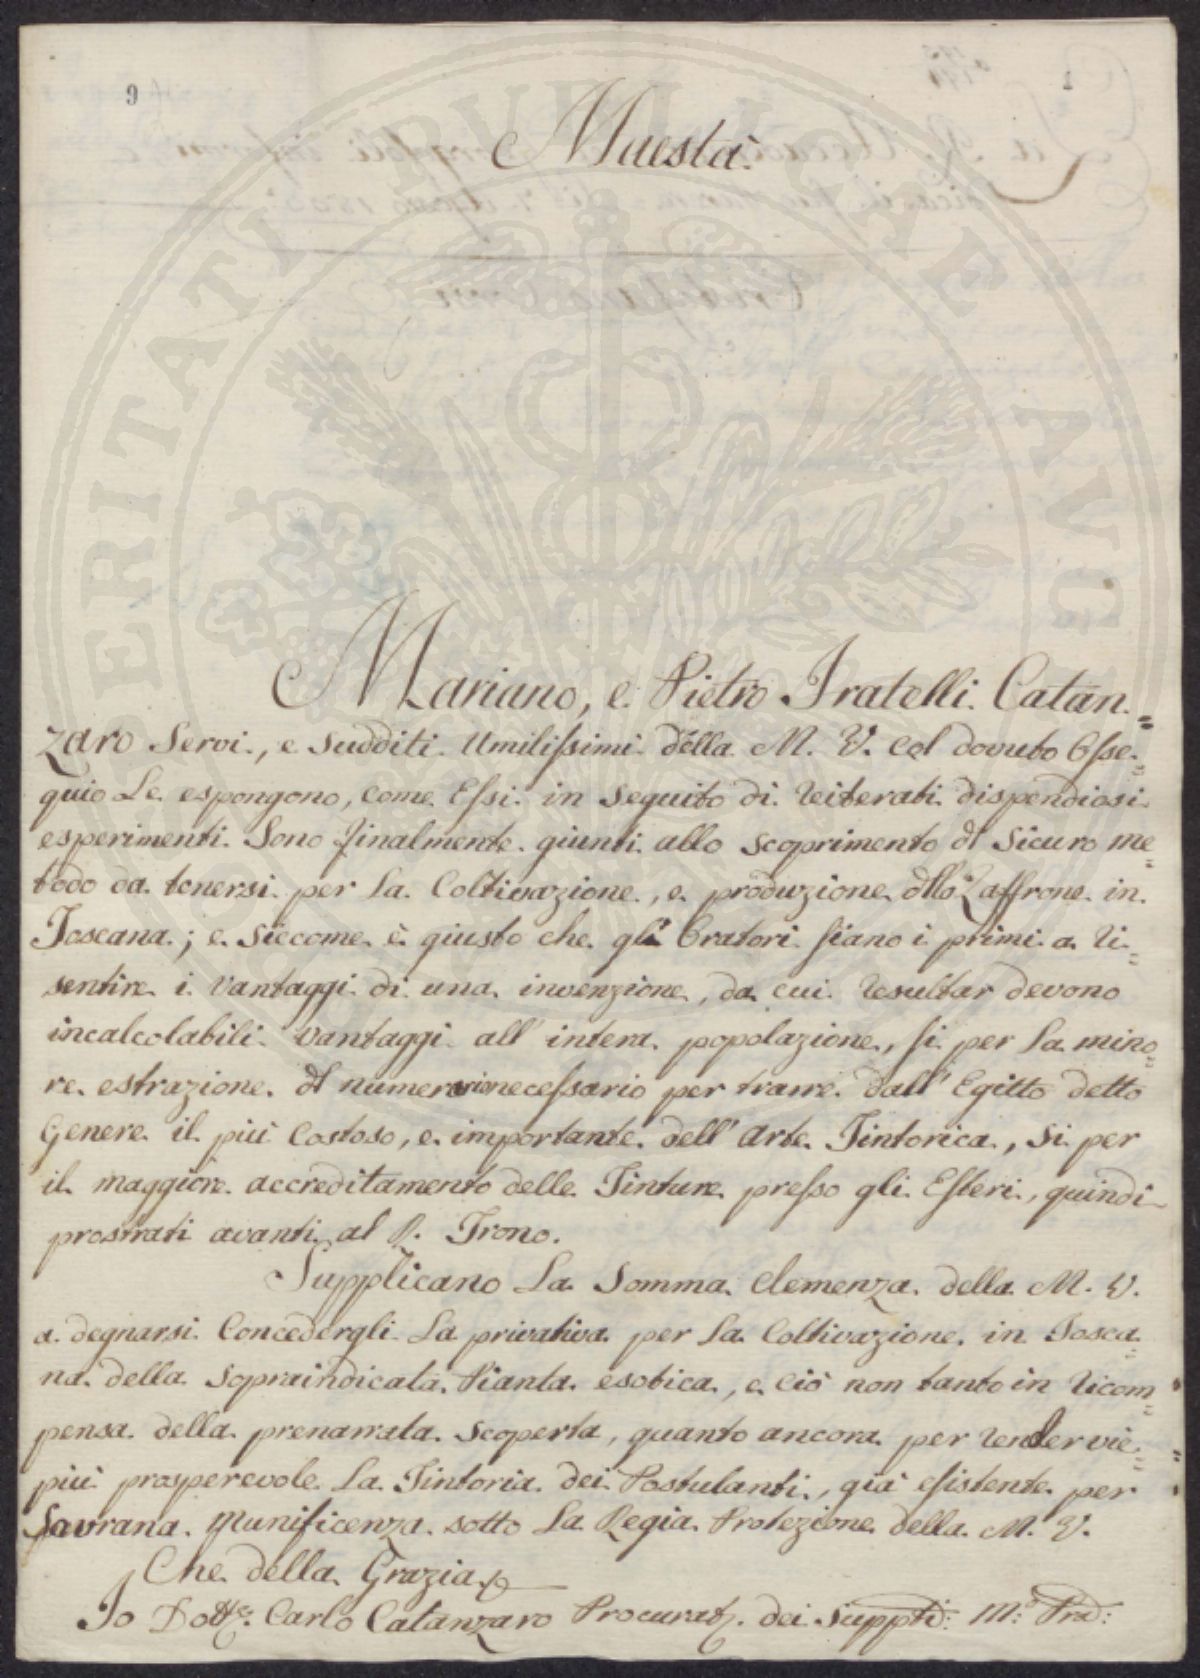 9
1
Maestà
Mariano, e Pietro Fratelli Catan=
zaro Servi, e Sudditi Umilissimi della M. V. col dovuto Osse=
quio Le espongono, come Essi in seguito di reiterati dispendiosi
esperimenti Sono finalmente giunti allo scoprimento dl Sicuro me=
todo da tenersi per La Coltivazione, e produzione dllo Zaffrone in
Toscana; e siccome è giusto che gli Oratori siano i primi a ri=
sentire i vantaggi di una invenzione, da cui resultar devono
incalcolabili vantaggi all' intera popolazione, si per La mino=
re estrazione dl numerario necessario per trarre dall' Egitto detto
Genere il più Costoso, e importante dell' Arte Tintorica, Si per
il maggiore accreditamento delle Tinture presso gli Esteri, quindi
prostrati avanti al R. Trono.
Supplicano La Somma Clemenza della M. V.
a degnarsi Concedergli La privativa per La Coltivazione in Tosca=
na della Sopraindicata Pianta esotica, e ciò non tanto in ricom=
pensa della prenarrata Scoperta, quanto ancora per render vie=
più prosperevole La Tintoria dei Postulanti, già esistente per
Sovrana Munificenza sotto La Regia Protezione della M. V.
Che della Grazia
Io Dotte: Carlo Catanzaro Procurat. dei Suppti: M:o Prod:
PVBLICAE
PERITATI
AVG